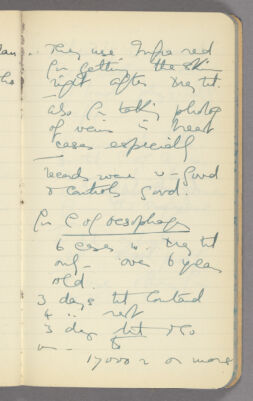 They use Infra red
for getting the skin
right after Xray tt.
also for taking photog
of veins in heart
cases especially
records were v. good
& controls good.
for C of oesophagus
6 cases Xray tt
only over 6 years
old.
3 days tt
4 " rest
3 day tt
17000 r or more